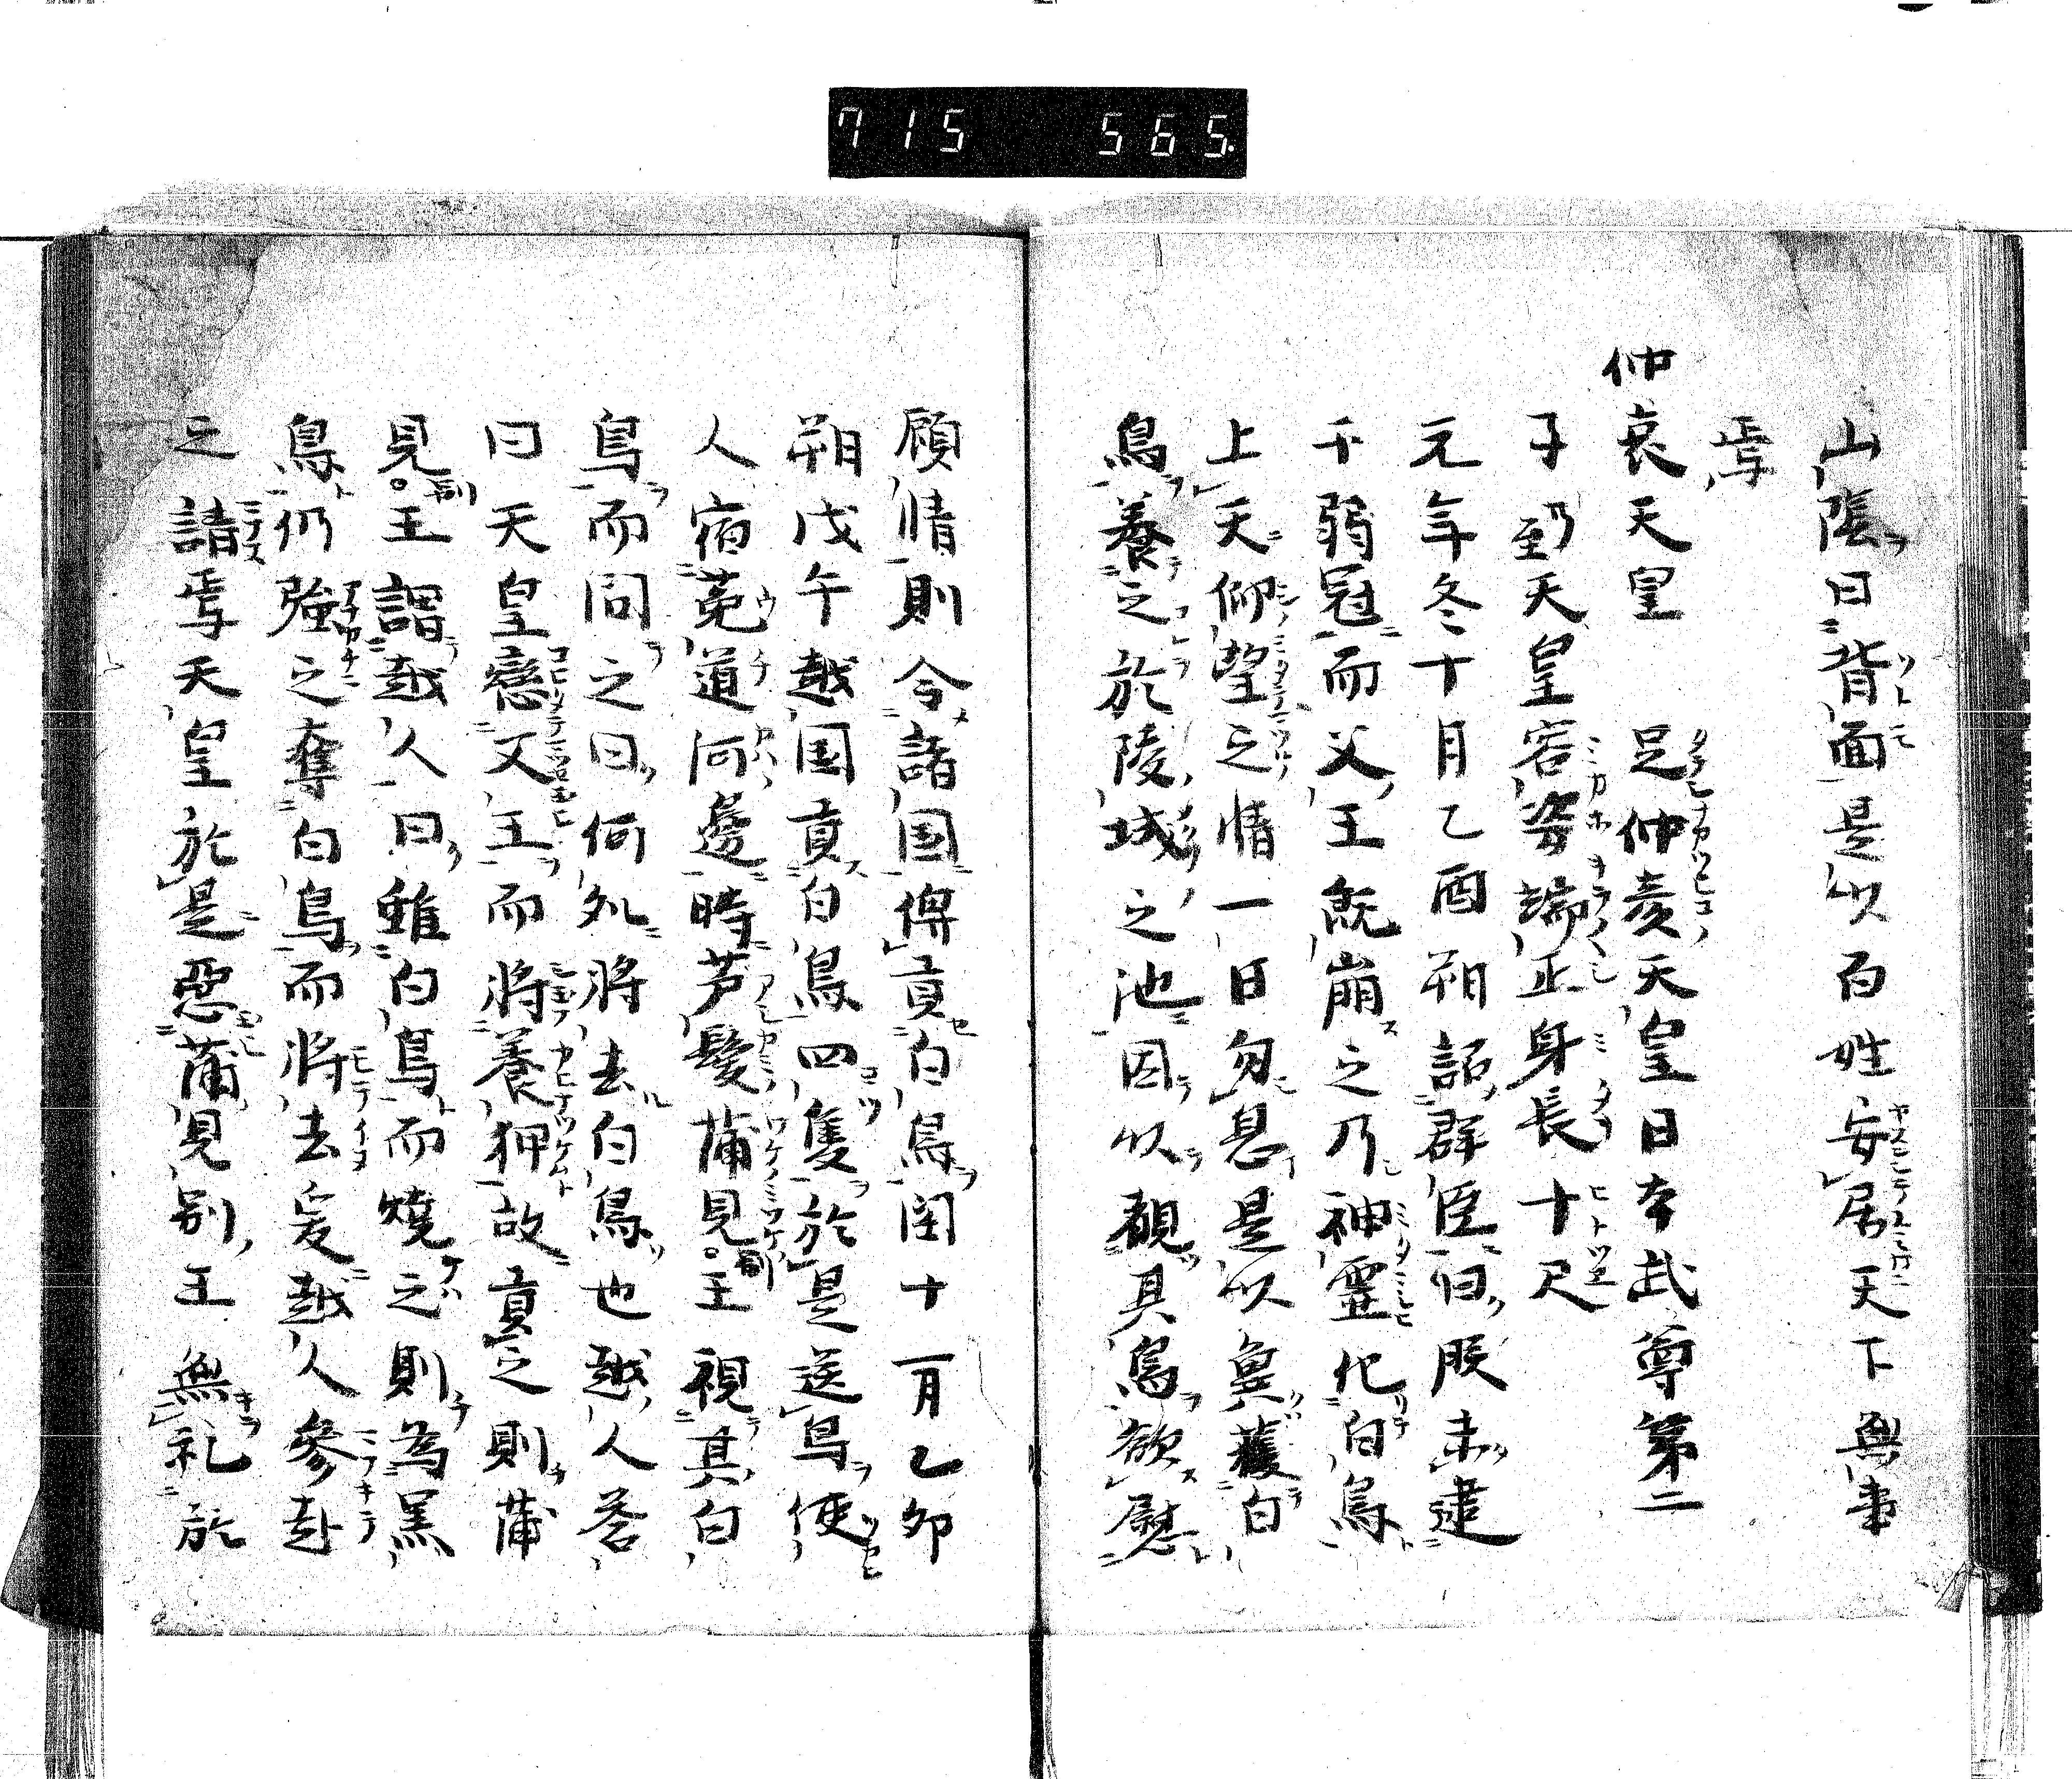 715 565.
山陰曰背面是以百姓安居天下無事
焉
仲哀天皇 足仲彦天皇日本武尊第二
子到天皇容姿端正身長十尺
元年冬十月乙酉朔詔群臣曰朕未逮
千弱冠而父王既崩之乃神霊化白鳥
上天仰望之情一日勿息是以冀獲白
鳥養之於陵域之池因以覩其鳥欲慰
顧情則令諸国俾貢白鳥閏十一月乙卯
朔戊午越国貢白鳥四隻於是送鳥使
人宿菟道河邊時芦髪蒲見別王視其白
鳥而問之曰何処将去白鳥也越人答
曰天皇戀父王而将養狎故貢之則蒲
見別王謂越人曰雖白鳥而焼之則為黒
鳥仍強之奪白鳥而将去爰越人参赴
之請焉天皇於是惡蒲見別王無礼於